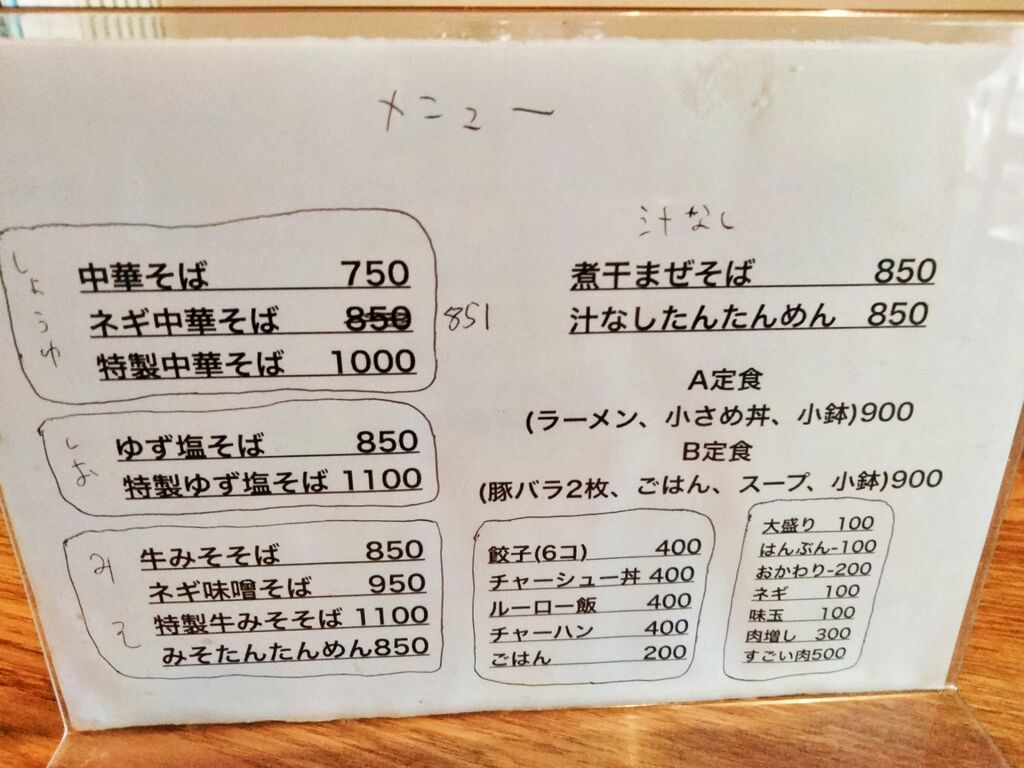 メニュー
しょうゆ
中華そば 750
ネギ中華そば 850 851
特製中華そば 1000
しお
ゆず塩そば 850
特製ゆず塩そば 1100
みそ
牛みそそば 850
ネギ味噌そば 950
特製牛みそそば 1100
みそたんたんめん850
汁なし
煮干まぜそば 850
汁なしたんたんめん 850
A定食
(ラーメン、小さめ丼、小鉢)900
B定食
(豚バラ2枚、ごはん、スープ、小鉢)900
餃子(6コ) 400
チャーシュー丼 400
ルーロー飯 400
チャーハン 400
ごはん 200
大盛り 100
はんぶん-100
おかわり-200
ネギ 100
味玉 100
肉増し 300
すごい肉500